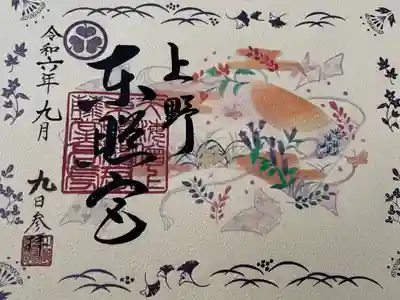 上野
東照宮
令和六年九月
九日参